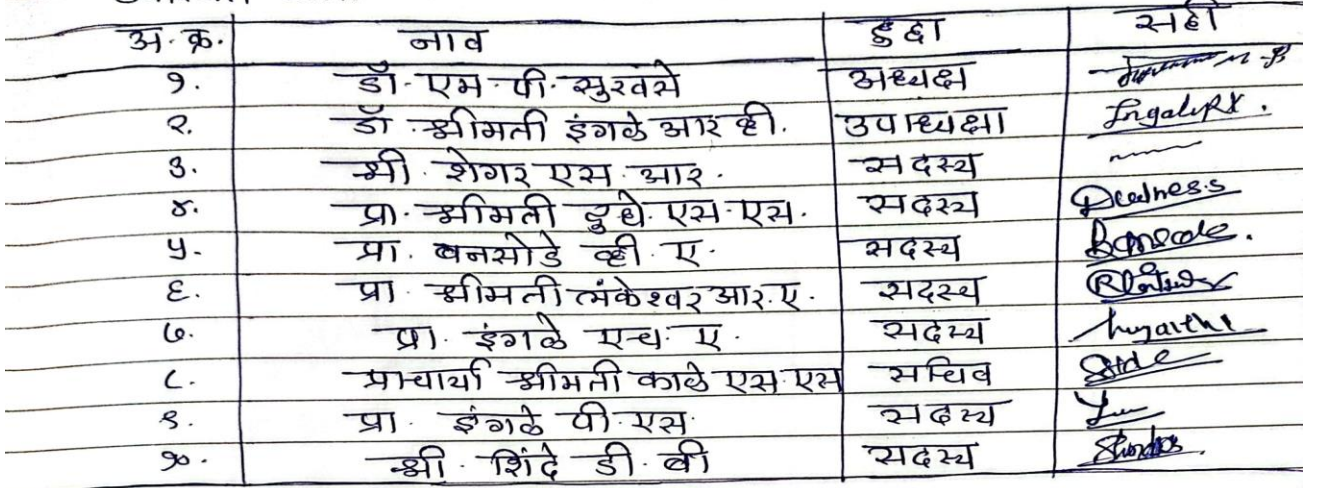 अ. क्र. नाव हुद्दा सही
१. डॉ. एम. पी. सुरवसे अध्यक्ष
२. डॉ. श्रीमती इंगळे आर. व्ही. उपाध्यक्षा
३. श्री. शेगर एस. आर. सदस्य
४. प्रा. श्रीमती दुधे. एस. एस. सदस्य
५. प्रा. बनसोडे व्ही. ए. सदस्य Bansode.
६. प्रा. श्रीमती लंकेश्वर आर. ए. सदस्य
७. प्रा. इंगळे एच. ए. सदस्य
८. प्राचार्या श्रीमती काळे एस. एस सचिव
९. प्रा. इंगळे पी. एस. सदस्य
१०. श्री. शिंदे डी. बी सदस्य